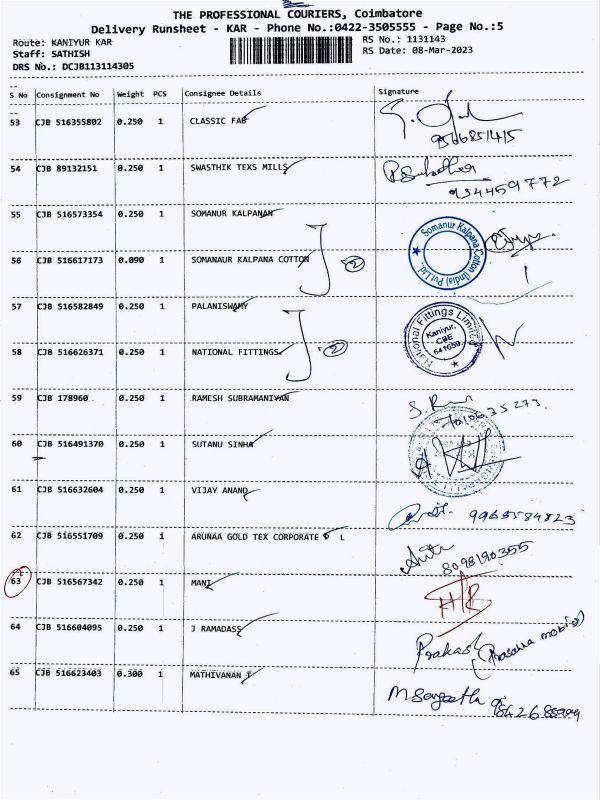 THE PROFESSIONAL COURIERS, Coimbatore
Delivery Runsheet - KAR - Phone No.:0422-3505555 - Page No.:5
Route: KANIYUR KAR
RS No.: 1131143
Staff: SATHISH
RS Date: 08-Mar-2023
DRS No.: DCJB113114305
S No Consignment No Weight PCS Consignee Details Signature
53 CJB 516355802 0.250 1 CLASSIC FAB
9566851415
54 CJB 89132151 0.250 1 SWASTHIK TEXS MILLS
9344509772
55 CJB 516573354 0.250 1 SOMANUR KALPANAN
Somanur Kalpana Cotton (India) Pvt.Ltd.,
56 CJB 516617173 0.090 1 SOMANAUR KALPANA COTTON 2
57 CJB 516582849 0.250 1 PALANISWAMY
National Fittings Limited
Kaniyur,
CBE
641659.
58 CJB 516626371 0.250 1 NATIONAL FITTINGS 2
59 CJB 178960 0.250 1 RAMESH SUBRAMANIYAN
60 CJB 516491370 0.250 1 SUTANU SINHA
61 CJB 516632604 0.250 1 VIJAY ANAND
62 CJB 516551709 0.250 1 ARUNAA GOLD TEX CORPORATE P L
8098190355
63 CJB 516567342 0.250 1 MANI
64 CJB 516604095 0.250 1 J RAMADASS
Prakash
65 CJB 516623403 0.300 1 MATHIVANAN T
M Sangeetha